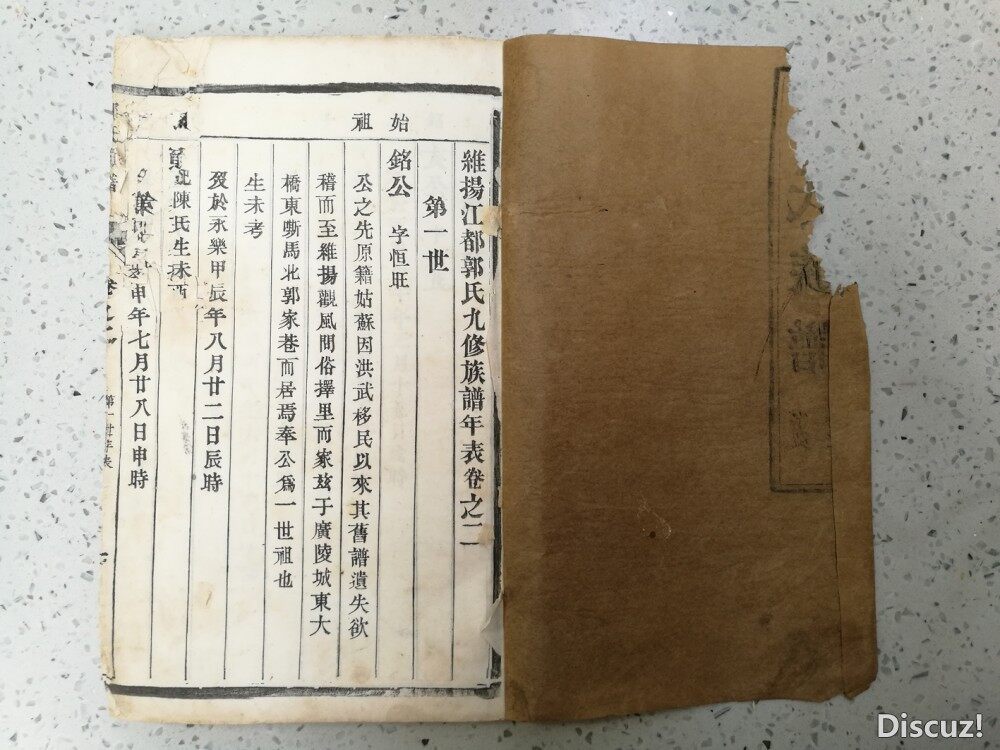 維揚江都郭氏九修族譜年表卷之二
始祖
第一世
銘公 字恒旺
公之先原籍姑蘇因洪武移民以來其舊譜遺失欲
稽而至維揚觀風問俗擇里而家玆于廣陵城東大
橋東嘶馬北郭家巷而居焉奉公爲一世祖也
生未考
歿於永樂甲辰年八月廿二日辰時
陳氏生未
申年七月廿八日申時
第一世年表
族譜
Discuz!